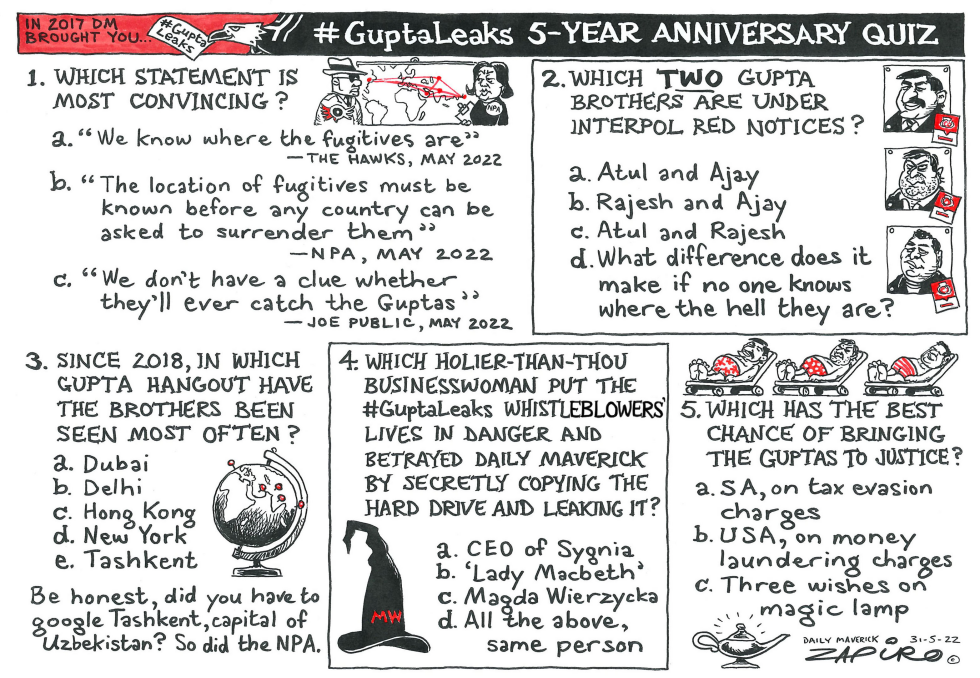 IN 2017 DM
BROUGHT YOU...
#Gupta
Leaks
#GuptaLeaks 5-YEAR ANNIVERSARY QUIZ
1. WHICH STATEMENT IS
MOST CONVINCING?
NPA
a. “We know where the fugitives are”
—THE HAWKS, MAY 2022
b. “The location of fugitives must be
known before any country can be
asked to surrender them”
—NPA, MAY 2022
c. “We don't have a clue whether
they'll ever catch the Guptas”
—JOE PUBLIC, MAY 2022
2. WHICH TWO GUPTA
BROTHERS ARE UNDER
INTERPOL RED NOTICES?
a. Atul and Ajay
b. Rajesh and Ajay
c. Atul and Rajesh
d. What difference does it
make if no one knows
where the hell they are?
3. SINCE 2018, IN WHICH
GUPTA HANGOUT HAVE
THE BROTHERS BEEN
SEEN MOST OFTEN?
a. Dubai
b. Delhi
c. Hong Kong
d. New York
e. Tashkent
Be honest, did you have to
google Tashkent, capital of
Uzbekistan? So did the NPA.
4. WHICH HOLIER-THAN-THOU
BUSINESSWOMAN PUT THE
#GuptaLeaks WHISTLEBLOWERS'
LIVES IN DANGER AND
BETRAYED DAILY MAVERICK
BY SECRETLY COPYING THE
HARD DRIVE AND LEAKING IT?
MW
a. CEO of Sygnia
b. 'Lady Macbeth'
c. Magda Wierzycka
d. All the above,
same person
5. WHICH HAS THE BEST
CHANCE OF BRINGING
THE GUPTAS TO JUSTICE?
a. SA, on tax evasion
charges
b. USA, on money
laundering charges
c. Three wishes on
magic lamp
DAILY MAVERICK 31-5-22
ZAPIRO ©